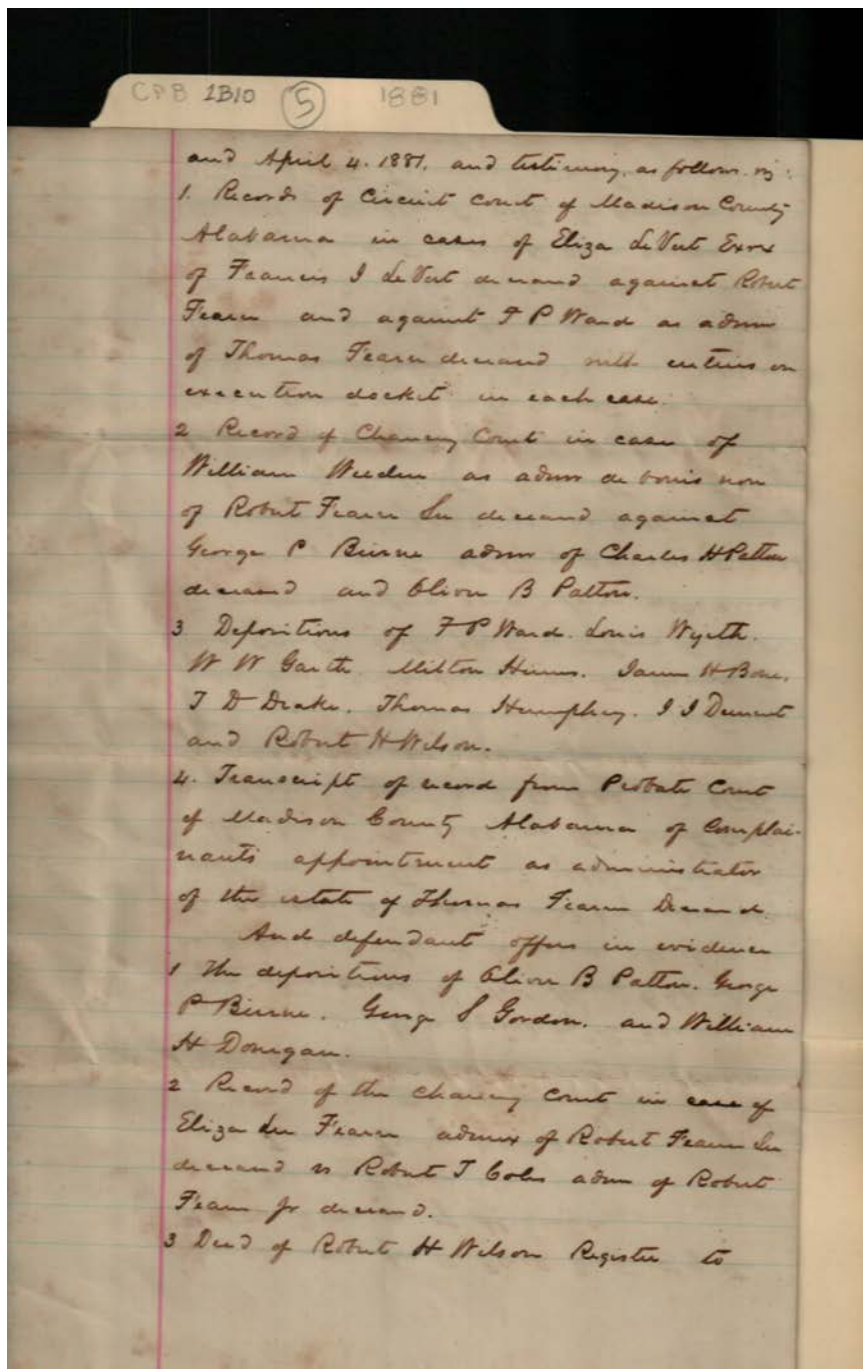 CPB 2B10 5 1881
and April 4. 1881, and testimony, as follows. viz:
1. Records of Circuit Court of Madison County
Alabama in cases of Eliza LeVert Exrx
of Francis J LeVert deceased against Robert
Fearn and against F P Ward as admr
of Thomas Fearn deceased with entries on
execution docket in each case.
2 Record of Chancery Court in case of
William Weeden as admr de bonis non
of Robert Fearn Sr deceased against
George P Beirne admr of Charles H Patton
deceased and Oliver B Patton.
3 Depositions of F P Ward. Louis Wyeth.
W W Garth. Milton Humes. James H Bone.
T D Drake. Thomas Humphrey. J J Dement
and Robert H Wilson.
4. Transcript of record from Probate Court
of Madison County Alabama of Complai-
nants appointment as administrator
of the estate of Thomas Fearn Deceased.
And defendant offers in evidence
1 The depositions of Oliver B Patton. George
P Beirne. George S Gordon. and William
H Donegan.
2 Record of the Chancery Court in case of
Eliza Lee Fearn admrx of Robert Fearn Sr
deceased vs Robert T Coles admr of Robert
Fearn Jr deceased.
3 Deed of Robert H Wilson Register to